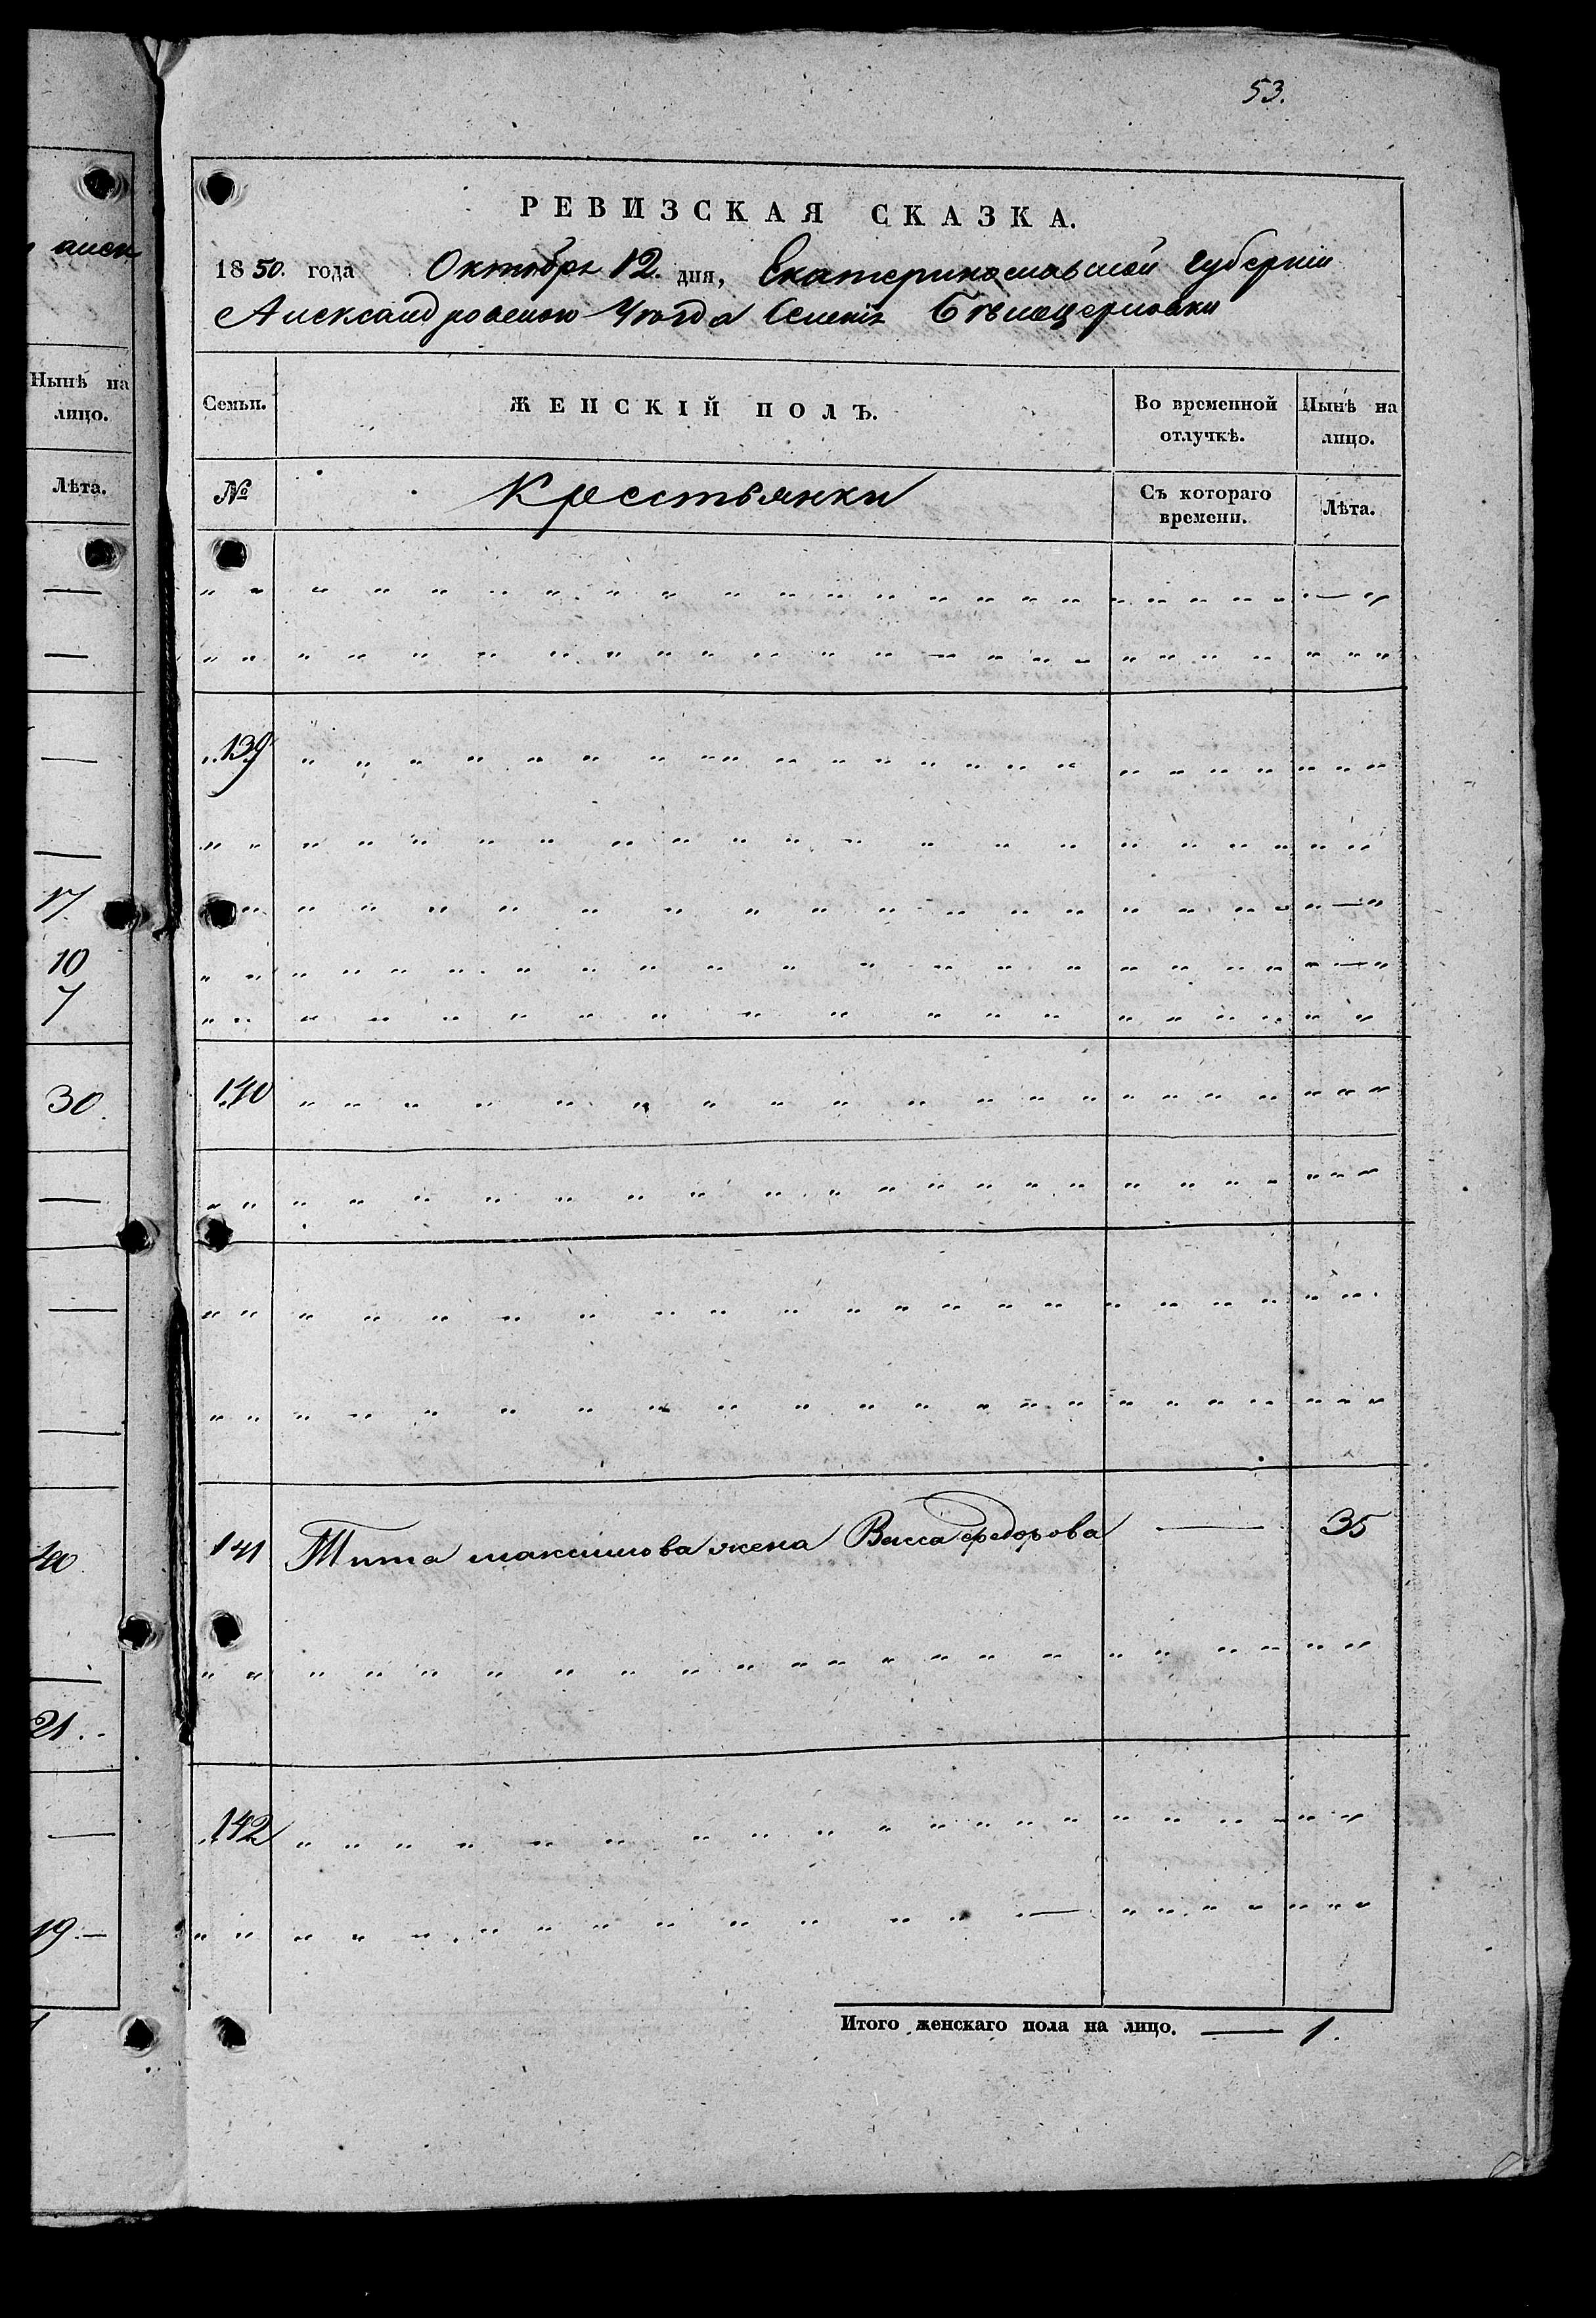 53.
РЕВИЗСКАЯ СКАЗКА.
1850. года Октября 12. дня, Екатеринославской губернии
Александровского Уезда Селения Бѣлоцерковки
Семьи. ЖЕНСКІЙ ПОЛЪ. Во временной отлучкѣ. Нынѣ на лицо.
№ Крестьянки Съ котораго времени. Лѣта.
139
140
141 Тита Максимова жена Васса Федорова — 35
142
Итого женскаго пола на лицо. — 1.
Нынѣ на
лицо.
Лѣта.
17.
10
7
30.
40
21.
19.